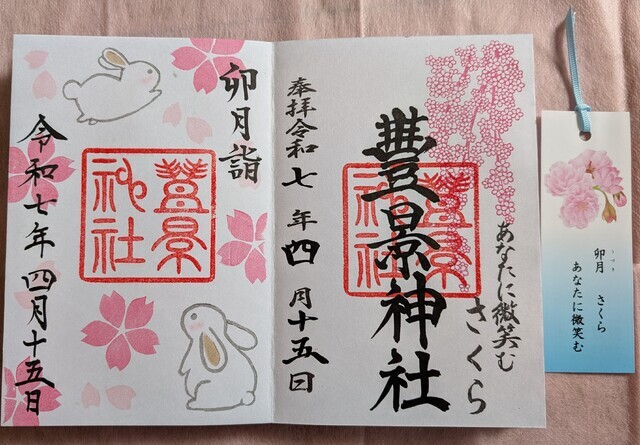 卯月詣
豊景神社
令和七年四月十五日
あなたに微笑む
さくら
豊景神社
豊景神社
奉拝令和七年四月十五日
うづき
卯月 さくら
あなたに微笑む